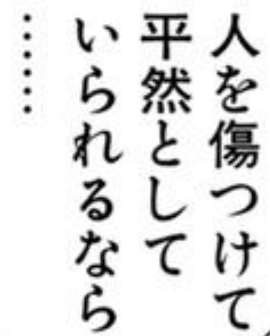 人を傷つけて
平然として
いられるなら
……